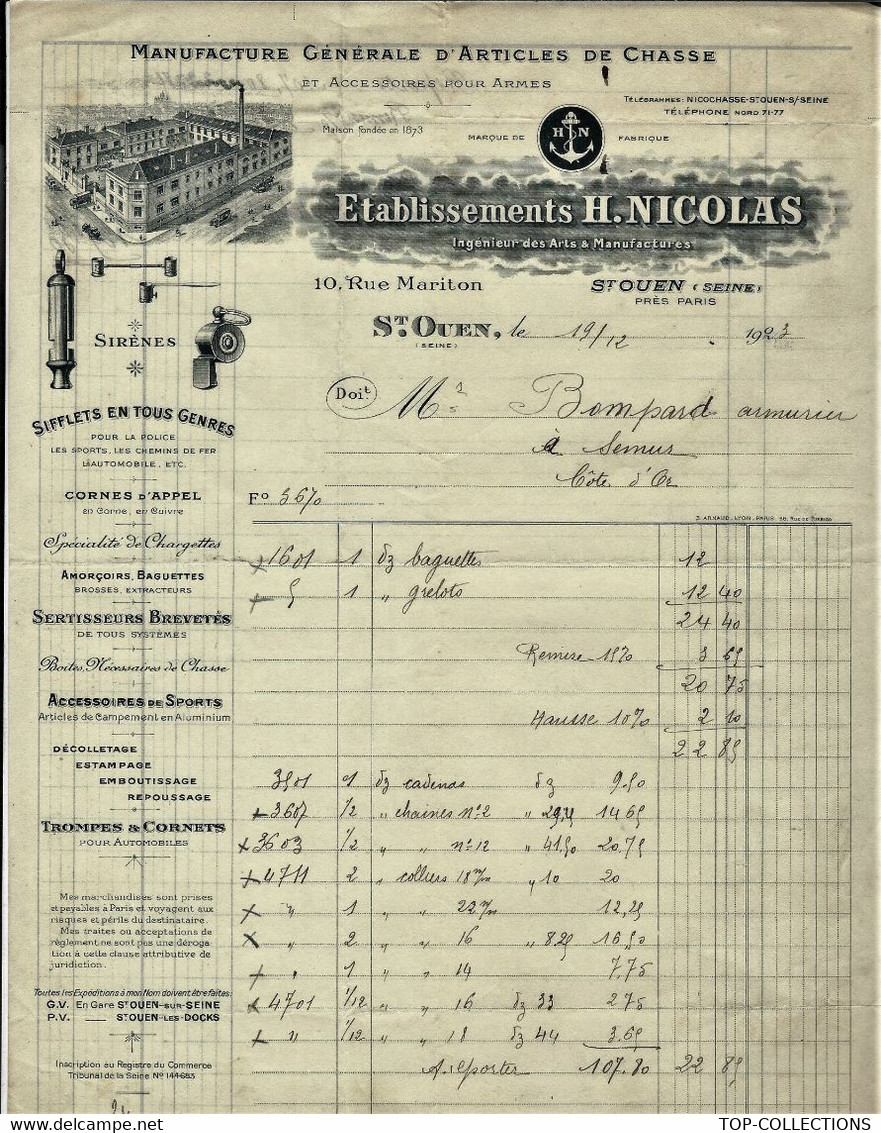 MANUFACTURE GÉNÉRALE D'ARTICLES DE CHASSE
ET ACCESSOIRES POUR ARMES
TÉLÉGRAMMES: NICOCHASSE-ST OUEN-S/SEINE
TÉLÉPHONE NORD 71-77
Maison fondée en 1873
MARQUE DE
H N
FABRIQUE
Etablissements H. NICOLAS
Ingénieur des Arts & Manufactures
10, Rue Mariton
ST OUEN (SEINE)
PRÈS PARIS
ST. OUEN, le 19/12 1923
(SEINE)
Doit
Mr Bompard armurier
à Semur
Côte d'Or
Fo 3670
SIRÈNES
SIFFLETS EN TOUS GENRES
POUR LA POLICE
LES SPORTS, LES CHEMINS DE FER
L'AUTOMOBILE, ETC.
CORNES D'APPEL
en Corne, en Cuivre
Spécialité de Chargettes
AMORÇOIRS, BAGUETTES
BROSSES, EXTRACTEURS
SERTISSEURS BREVETÉS
DE TOUS SYSTÈMES
Boîtes, Nécessaires de Chasse
ACCESSOIRES DE SPORTS
Articles de Campement en Aluminium
DÉCOLLETAGE
ESTAMPAGE
EMBOUTISSAGE
REPOUSSAGE
TROMPES & CORNETS
POUR AUTOMOBILES
Mes marchandises sont prises
et payables à Paris et voyagent aux
risques et périls du destinataire.
Mes traites ou acceptations de
règlement ne sont pas une déroga
tion à cette clause attributive de
juridiction.
Toutes les Expéditions à mon Nom doivent être faites:
G.V. En Gare ST OUEN-SUR-SEINE
P.V. — ST OUEN-LES-DOCKS
Inscription au Registre du Commerce
Tribunal de la Seine No 144-653
B. ARNAUD, LYON, PARIS
x 1601 1 dz baguettes 12
x 5 1 " grelots 12 40
24 40
Remise 15% 3 65
20 75
Hausse 10% 2 10
22 85
3501 1 dz cadenas dz 9.50
x 3607 1/2 " chaines no 2 " 29,25 14 65
x 3603 1/2 " " no 12 " 41.50 20.75
x 4711 2 " colliers 18 m/m " 10 20
x " 1 " " 22 m/m 12,25
x " 2 " " 16 " 8.25 16.50
x " 1 " " 14 7.75
x 4701 1/12 " " 16 dz 33 2 75
x " 1/12 " " 18 dz 44 3.65
A reporter 107.80 22 85
TOP-COLLECTIONS